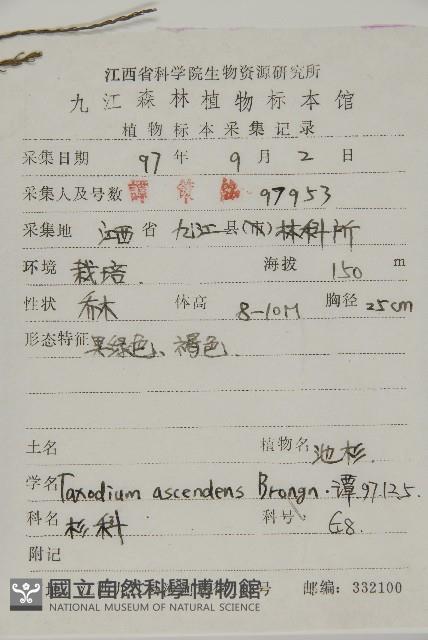 江西省科学院生物资源研究所
九江森林植物标本馆
植物标本采集记录
采集日期 97 年 9 月 2 日
采集人及号数 譚 97953
采集地 江西 省 九江 县(市) 林科所
环境 栽培. 海拔 150 m
性状 乔木 体高 8-10M 胸径 25cm
形态特征 果绿色、褐色.
土名 植物名 池杉.
学名 Taxodium ascendens Brongn. 譚 97.12.5.
科名 杉科 科号 G8.
附记
國立自然科學博物館
NATIONAL MUSEUM OF NATURAL SCIENCE
号 邮编: 332100